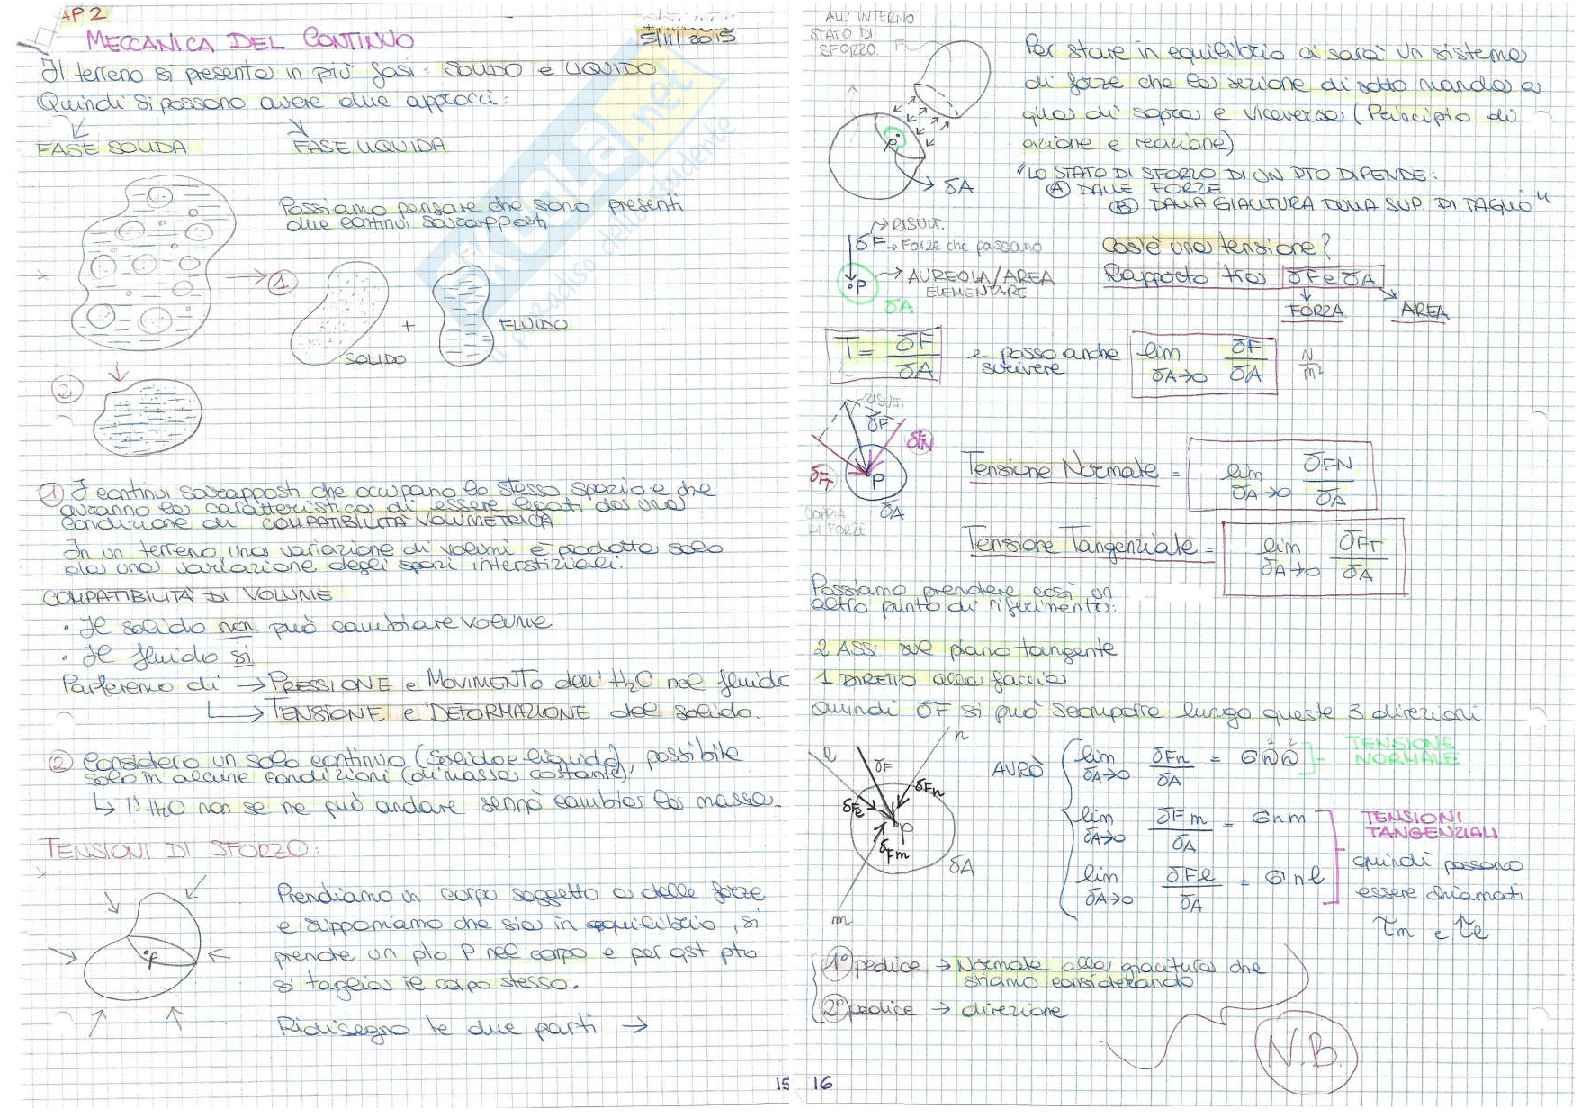 AP 2
MECCANICA DEL CONTINUO
5/11/2015
Il terreno si presenta in più fasi: SOLIDO e LIQUIDO
Quindi si possono avere due approcci:
FASE SOLIDA
FASE LIQUIDA
Possiamo pensare che sono presenti
due continui sovrapposti
1
+
FLUIDO
SOLIDO
2
1 I continui sovrapposti che occupano lo stesso spazio e che
avranno la caratteristica di essere legati da una
condizione di COMPATIBILITÀ VOLUMETRICA
In un terreno una variazione di volumi è prodotta solo
da una variazione degli spazi interstiziali.
COMPATIBILITÀ DI VOLUME
• Il solido non può cambiare volume
• Il fluido si
Parleremo di → PRESSIONE e MOVIMENTO dell'H2O nel fluido
→ TENSIONE e DEFORMAZIONE del solido.
2 Considero un solo continuo (solido e liquido), possibile
solo in alcune condizioni (di massa costante),
↳ l'H2O non se ne può andare sennò cambia la massa.
TENSIONI DI SFORZO:
Prendiamo un corpo soggetto a delle forze
e supponiamo che sia in equilibrio, si
prende un pto P nel corpo e per qst pto
si taglia il corpo stesso.
P
Ridisegno le due parti →
15
ALL'INTERNO
STATO DI
SFORZO
Per stare in equilibrio ci sarà un sistema
di forze che la sezione di sotto manda a
quella di sopra e viceversa (Principio di
azione e reazione)
P
δA
"LO STATO DI SFORZO DI UN PTO DIPENDE:
A DALLE FORZE
B DALLA GIACITURA DELLA SUP. DI TAGLIO"
→ RISULT.
δF → Forze che passano
•P
→ AUREOLA/AREA
ELEMENTARE
δA
Cos'è una tensione?
Rapporto tra δF e δA
FORZA
AREA
T = δF/δA
e posso anche
scrivere
lim δA→0 δF/δA
N/m²
RISULT.
δF
δFN
δFT
P
δA
COPPIA
DI FORZE
Tensione Normale = lim δA→0 δFN/δA
Tensione Tangenziale = lim δA→0 δFT/δA
Possiamo prendere così un
altro punto di riferimento:
2 ASSI sul piano tangente
1 DIRETTO alla faccia
quindi δF si può scomporre lungo queste 3 direzioni
l
n
δF
δFn
δFl
P
δFm
δA
m
AVRÒ
lim δA→0 δFn/δA = σnn
TENSIONE
NORMALE
lim δA→0 δFm/δA = σnm
lim δA→0 δFl/δA = σnl
TENSIONI
TANGENZIALI
quindi possono
essere chiamati
τm e τl
1° pedice → Normale alla giacitura che
stiamo considerando
2° pedice → direzione
N.B.
16